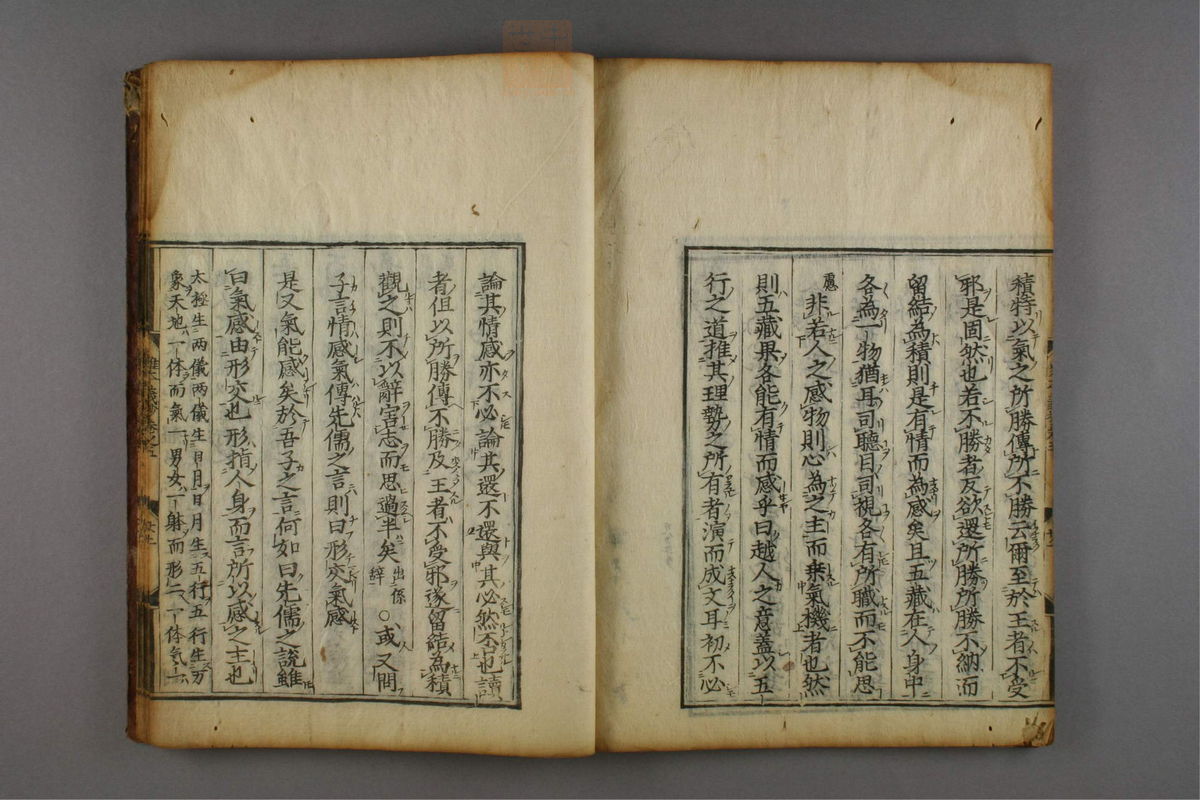 積特以氣之所勝傳所不勝云爾至於王者不受
邪是固然也若不勝者反欲還所勝所勝不納而
留結為積則是有情而為感矣且五藏在人身中
各為一物猶耳司聽目司視各有所職而不能思
慮非若人之感物則心為之主而乗氣機者也然
則五藏果各能有情而感乎曰越人之意蓋以五
行之道推其理勢之所有者演而成文耳初不必
論其情感亦不必論其還不還與其必然否也讀
者但以所勝傳不勝及王者不受邪遂留結為積
觀之則不以辭害志而思過半矣出係辭○或又問
子言情感氣傳先儒之言則曰形交氣感
是又氣能感矣於吾子之言何如曰先儒之說雖
曰氣感由形交也形指人身而言所以感之主也
太極生兩儀兩儀生日月日月生五行五行生万
象天地一体而氣一男女一躰而形二一体気一